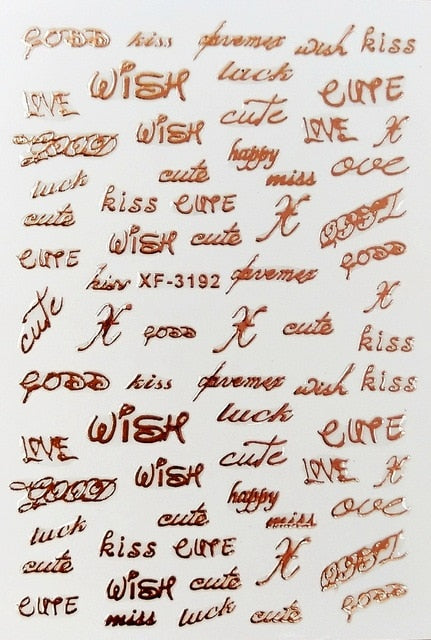 GOOD kiss wish kiss
WISH luck CUTE
LOVE WISH cute LOVE H
GOOD happy ove
luck cute miss
cute kiss CUTE H
CUTE WISH cute GOOD
kiss XF-3192
cute H GOOD H cute H
kiss
GOOD kiss wish kiss
WISH luck CUTE
LOVE WISH cute LOVE H
GOOD happy ove
cute miss
luck kiss CUTE H
cute WISH cute
CUTE miss luck cute GOOD